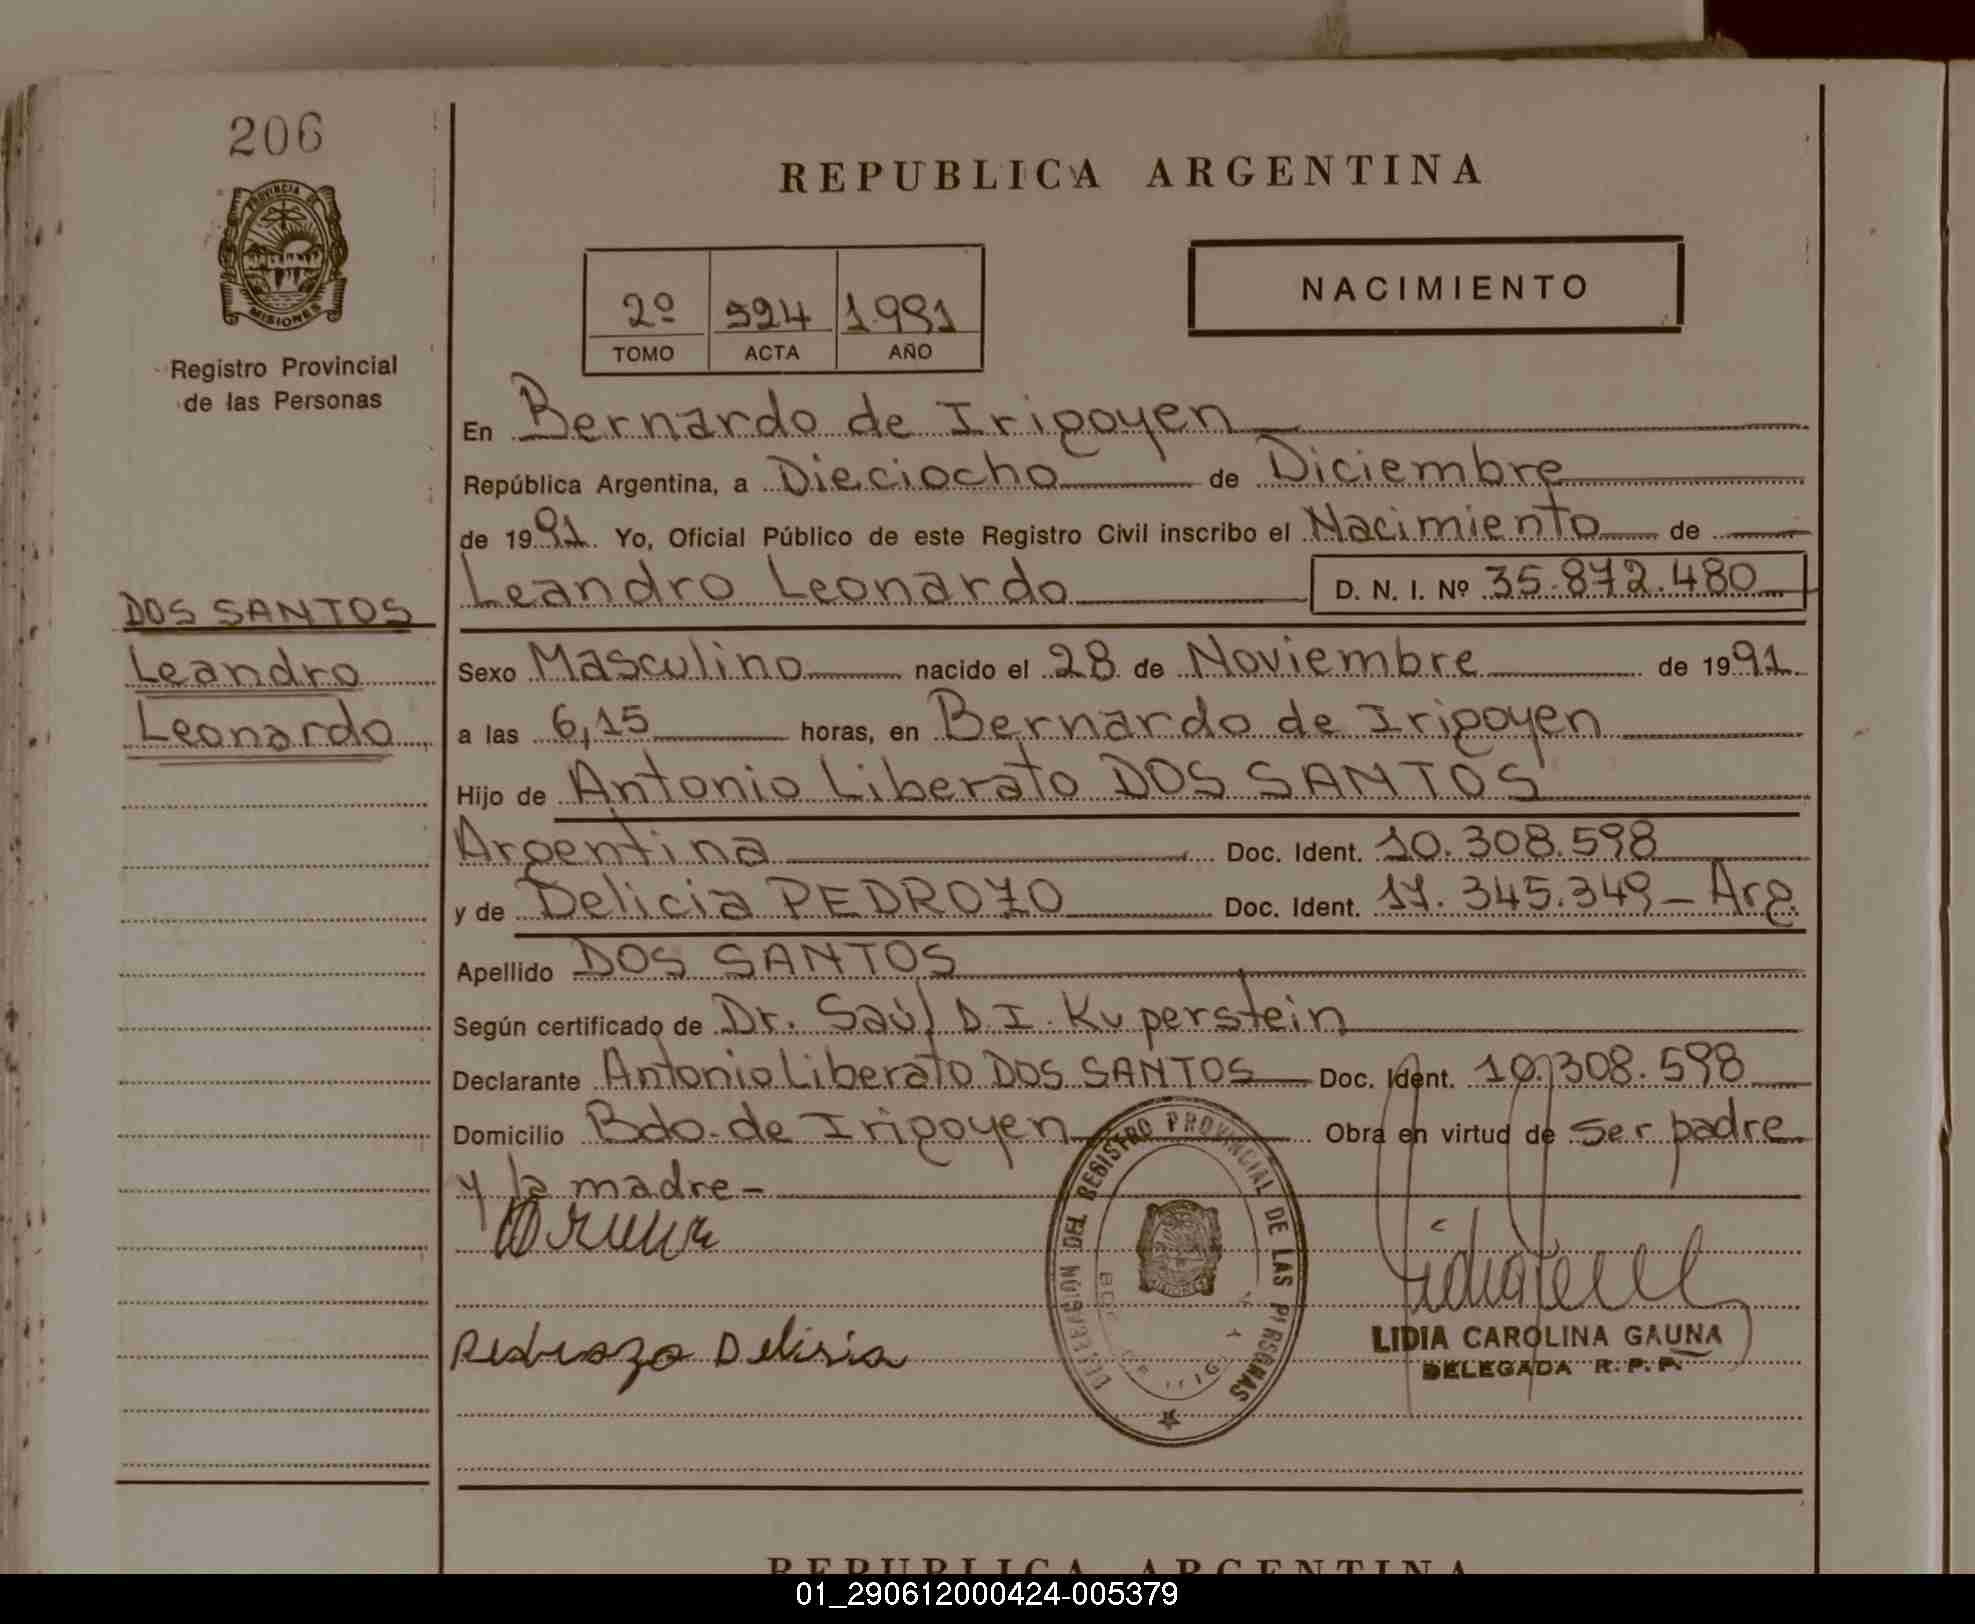 206
PROVINCIA DE
MISIONES
Registro Provincial
de las Personas
REPUBLICA ARGENTINA
NACIMIENTO
2º 924 1991
TOMO ACTA AÑO
En Bernardo de Irigoyen
República Argentina, a Dieciocho de Diciembre
de 1991. Yo, Oficial Público de este Registro Civil inscribo el Nacimiento de
Leandro Leonardo D. N. I. Nº 35.872.480
DOS SANTOS
Leandro
Leonardo
Sexo Masculino nacido el 28 de Noviembre de 1991
a las 6,15 horas, en Bernardo de Irigoyen
Hijo de Antonio Liberato DOS SANTOS
Argentina Doc. Ident. 10.308.598
y de Delicia PEDROZO Doc. Ident. 17.345.349 – Arg.
Apellido DOS SANTOS
Según certificado de Dr. Saúl D.I. Kuperstein
Declarante Antonio Liberato DOS SANTOS Doc. Ident. 10.308.598
Domicilio Bdo. de Irigoyen Obra en virtud de ser padre
y la madre –
DELEGACION DEL REGISTRO PROVINCIAL DE LAS PERSONAS
Pedrozo Delisia
LIDIA CAROLINA GAUNA
DELEGADA R. P. P.
REPUBLICA ARGENTINA
01_290612000424-005379